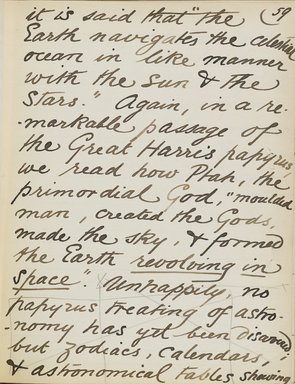 it is said that "the (59
Earth navigates the celestial
ocean in like manner
with the Sun & the
Stars." Again, in a re-
-markable passage of
the Great Harris papyrus
we read how Ptah, the
primordial God, "moulded
man, created the Gods,
made the sky, & formed
the Earth revolving in
space". Unhappily, no
papyrus treating of astro-
-nomy has yet been discovered,
but zodiacs, calendars,
& astronomical tables showing